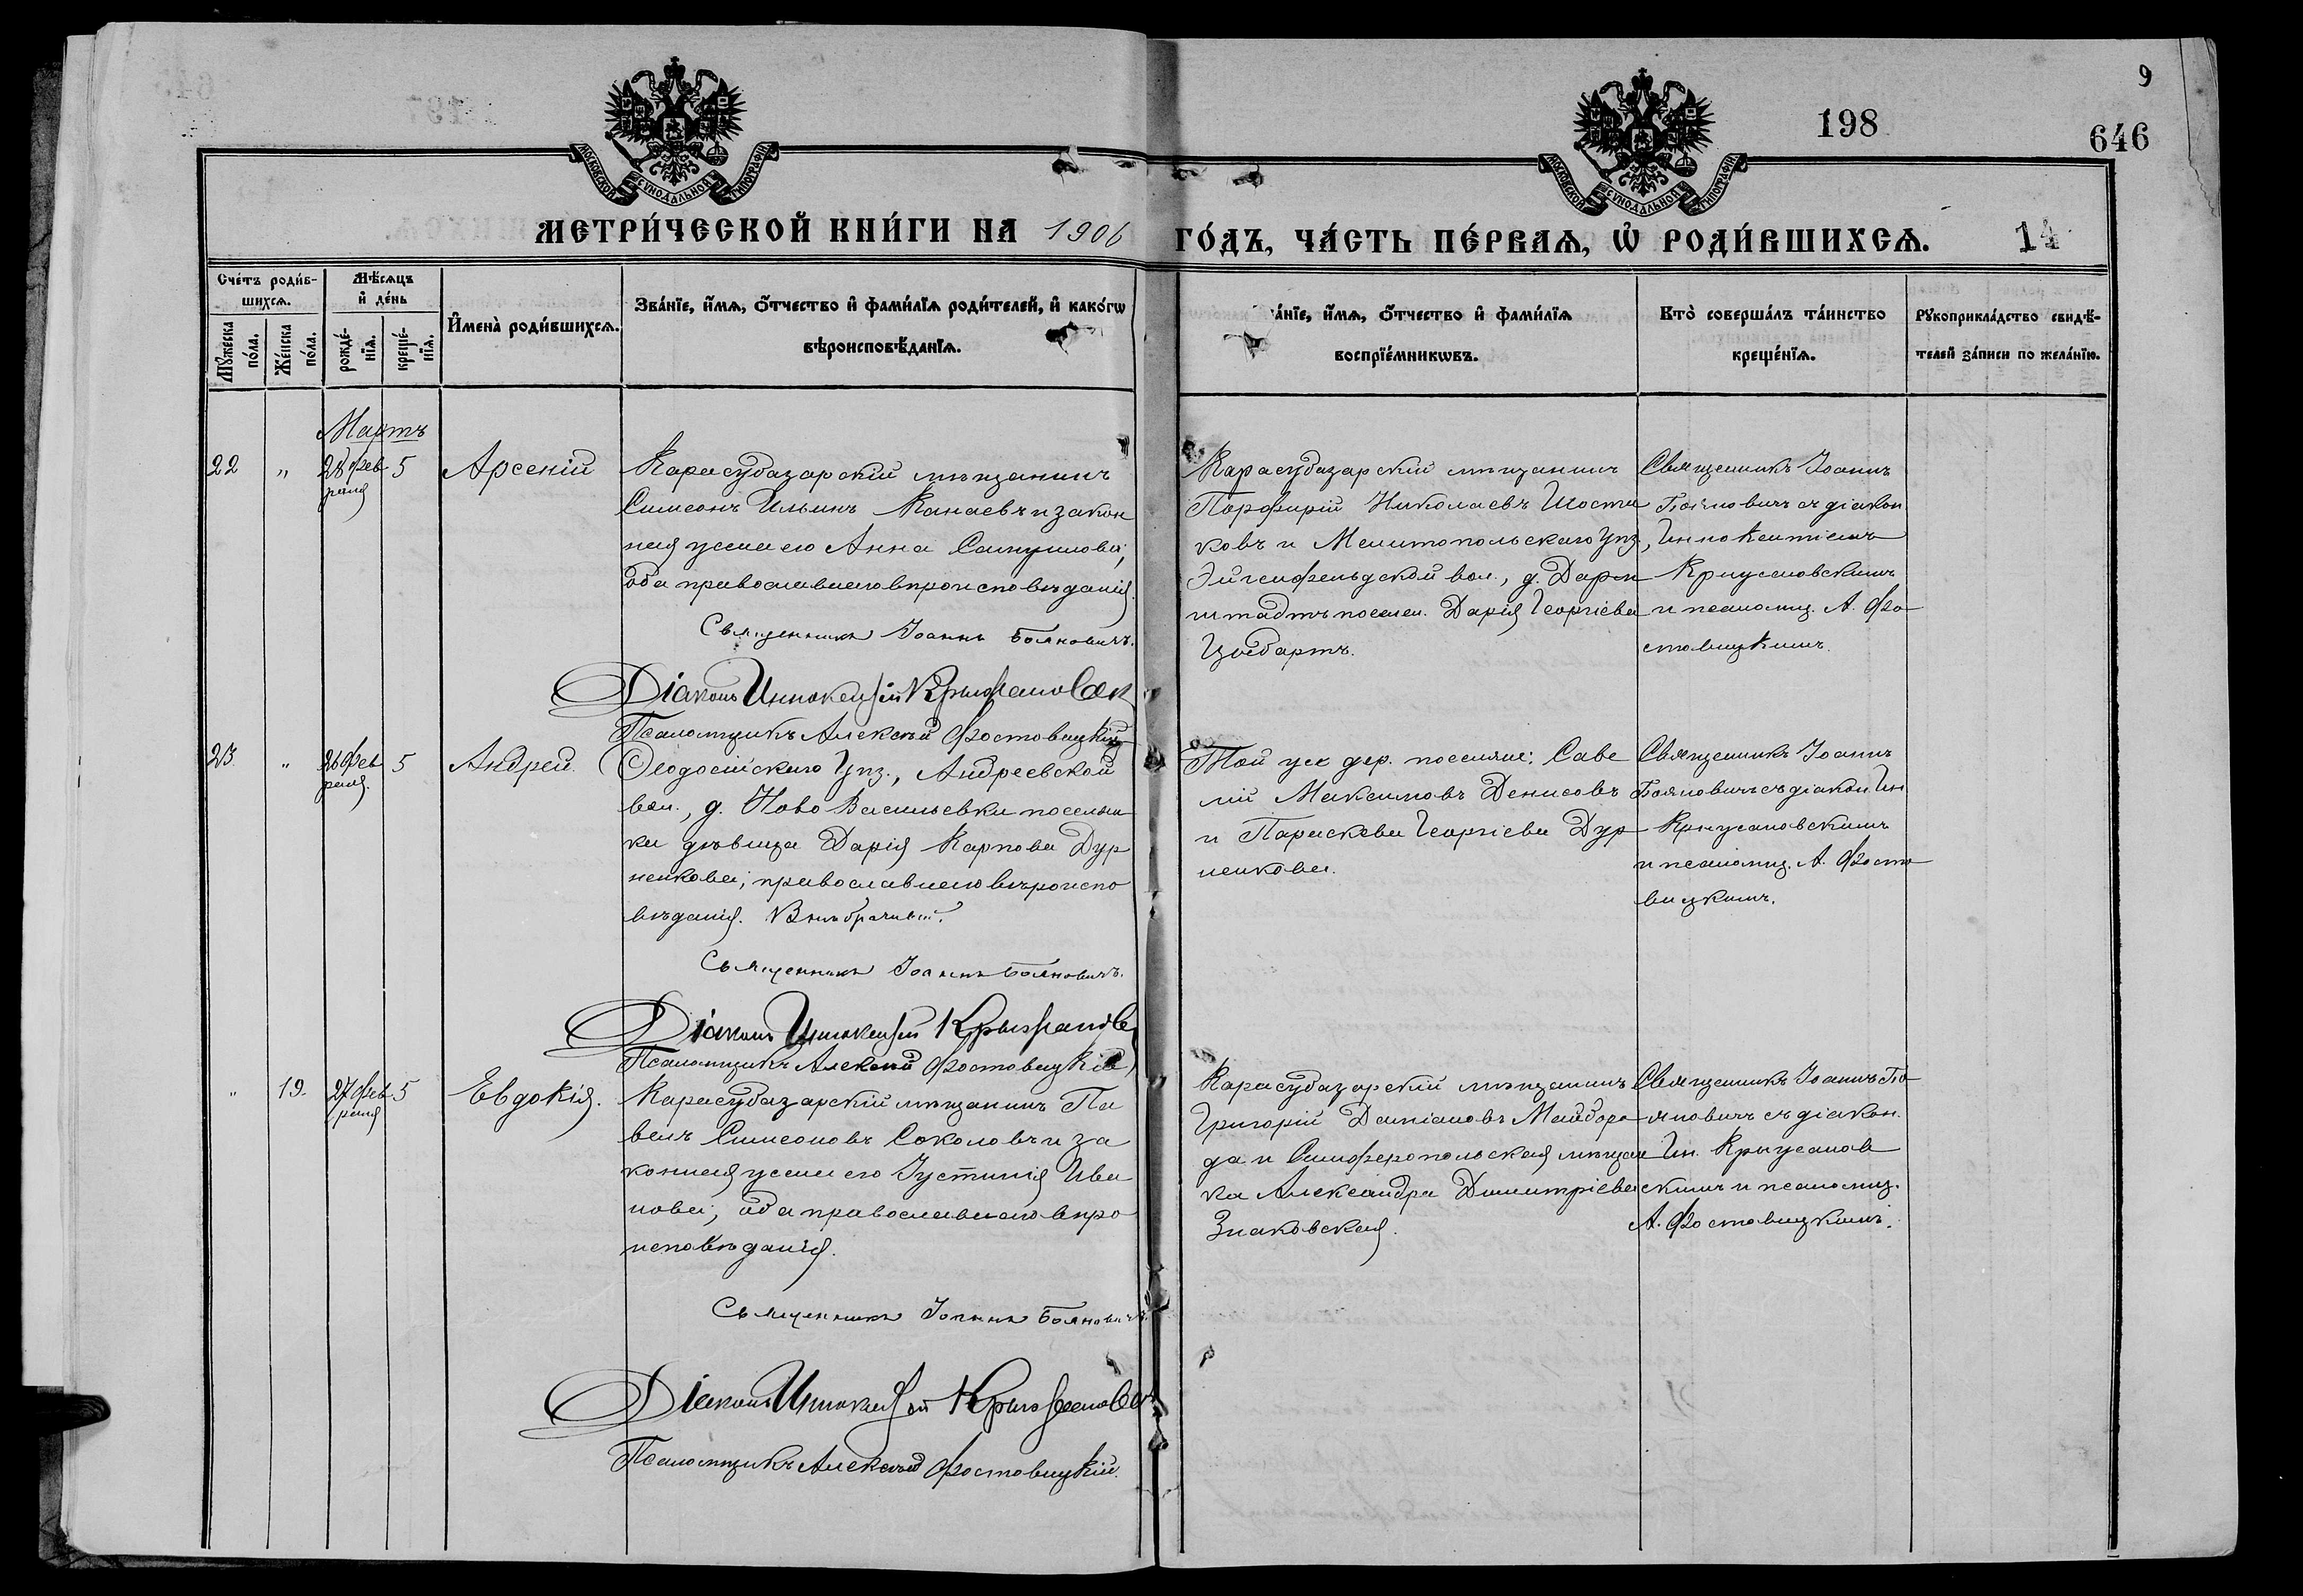 9
198
646
МОСКОВСКОЙ СѴНОДАЛЬНОЙ ТИПОГРАФІИ
МОСКОВСКОЙ СѴНОДАЛЬНОЙ ТИПОГРАФІИ
МЕТРИ́ЧЕСКОЙ КНИ́ГИ НА 1906
ГО́ДЪ, ЧА́СТЬ ПЕ́РВАѦ, Ѡ҆ РОДИ́ВШИХСѦ. 14
Сче́тъ роди́в-
шихсѧ.
Мꙋ́жеска
по́ла.
Же́нска
по́ла.
Мѣ́сѧцъ
и҆ де́нь
рожде́-
нїѧ.
креще́-
нїѧ.
И҆мена̀ роди́вшихсѧ.
Зва́нїе, и҆́мѧ, ѻ҆́тчество и҆ фами́лїѧ роди́телей, и҆ како́гѡ
вѣроисповѣ́данїѧ.
а́нїе, и҆́мѧ, ѻ҆́тчество и҆ фами́лїѧ
воспрїе́мникѡвъ.
Кто̀ соверша́лъ та́инство
креще́нїѧ.
Рꙋкоприкла́дство свидѣ́-
телей за́писи по жела́нїю.
Мартъ
22 " 28 фев
раля
5 Арсеній
Карасубазарскій мѣщанинъ
Симеонъ Ильинъ Канаевъ и закон
ная жена его Анна
оба православнаго вѣроисповѣданія.
Священникъ Іоаннъ Бояновичъ.
Діаконъ Иннокентій Крыжановск
Псаломщикъ Алексѣй Фостовицкій
Карасубазарскій мѣщанинъ
Порфирій Николаевъ Шоста
ковъ и Мелитопольскаго уѣз.,
Эйгенфельдской вол., д. Дарм
штадтъ поселен. Дарія Георгіева
Цвебартъ.
Священникъ Іоаннъ
Бояновичъ съ діакон
Иннокентіемъ
Крыжановскимъ
и псаломщ. А. Фо
стовицкимъ.
23 " 26 Фев
раля.
5 Андрей.
Ѳеодосійскаго уѣз., Андреевской
вол., д. Ново Васильевки поселян
ка дѣвица Дарія Карпова Дур
ненкова, православнаго вѣроиспо
вѣданія. Внѣбрачный.
Священникъ Іоаннъ Бояновичъ.
Діаконъ Иннокентій Крыжановс
Псаломщикъ Алексѣй Фостовицкій
Той же дер. поселяне: Саве
лій Максимовъ Денисовъ
и Параскева Георгіева Дур
ненкова.
Священникъ Іоаннъ
Бояновичъ съ діакон Ин
Крыжановскимъ
и псаломщ. А. Фосто
вицкимъ.
" 19. 27 фев
раля
5 Евдокія.
Карасубазарскій мѣщанинъ Па
велъ Симеоновъ Соколовъ и за
конная жена его Іустинія Ива
нова, оба православнаго вѣро
исповѣданія.
Священникъ Іоаннъ Бояновичъ.
Діаконъ Иннокентій Крыжановск
Псаломщикъ Алексѣй Фостовицкій.
Карасубазарскій мѣщанинъ
Григорій Даміановъ Майборо
да и Симферопольская мѣщан
ка Александра Димитріева
Знаковская.
Священникъ Іоаннъ Бо
яновичъ съ діакон.
Ин. Крыжанов
скимъ и псаломщ.
А. Фостовицкимъ.